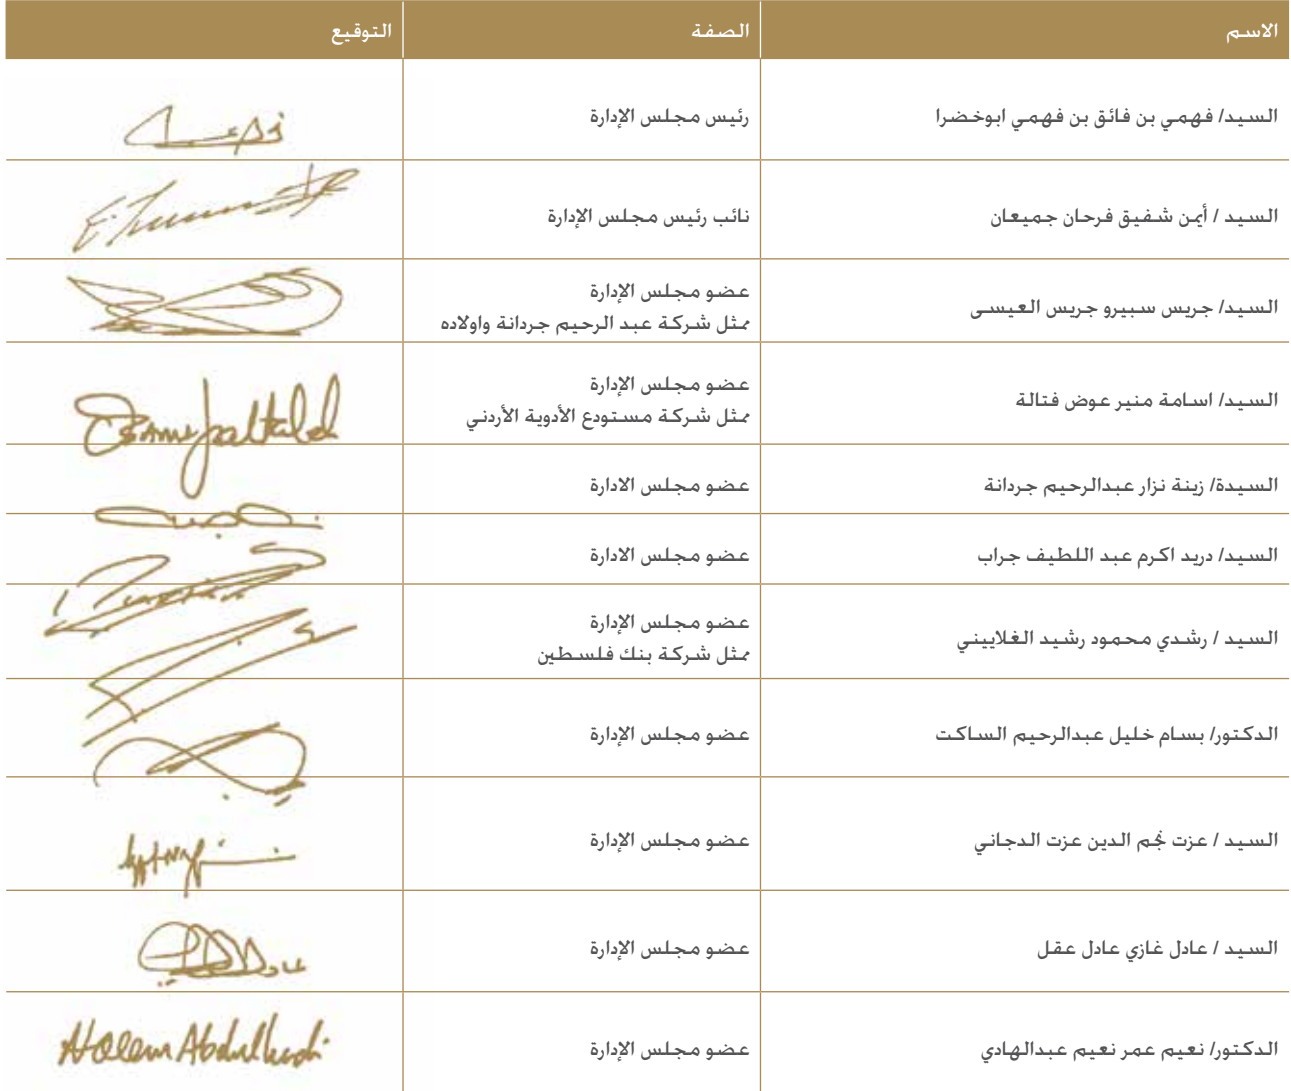 الاسم الصفة التوقيع
السيد/ فهمي بن فائق بن فهمي ابوخضرا رئيس مجلس الإدارة
السيد / أيمن شفيق فرحان جميعان نائب رئيس مجلس الإدارة
السيد/ جريس سبيرو جريس العيسى عضو مجلس الإدارة
ممثل شركة عبد الرحيم جردانة واولاده
السيد/ اسامة منير عوض فتالة عضو مجلس الإدارة
ممثل شركة مستودع الأدوية الأردني
السيدة/ زينة نزار عبدالرحيم جردانة عضو مجلس الادارة
السيد/ دريد اكرم عبد اللطيف جراب عضو مجلس الادارة
السيد / رشدي محمود رشيد الغلاييني عضو مجلس الإدارة
ممثل شركة بنك فلسطين
الدكتور/ بسام خليل عبدالرحيم الساكت عضو مجلس الإدارة
السيد / عزت نجم الدين عزت الدجاني عضو مجلس الإدارة
السيد / عادل غازي عادل عقل عضو مجلس الإدارة
الدكتور/ نعيم عمر نعيم عبدالهادي عضو مجلس الإدارة